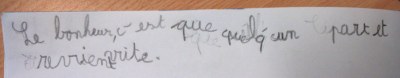 Le bonheur, c'est que quelq'un part et
revrien rite.